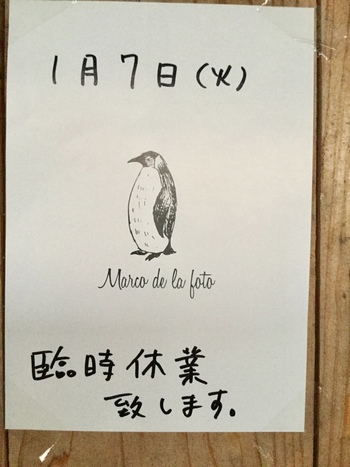 1月7日(火)
Marco de la foto
臨時休業
致します。